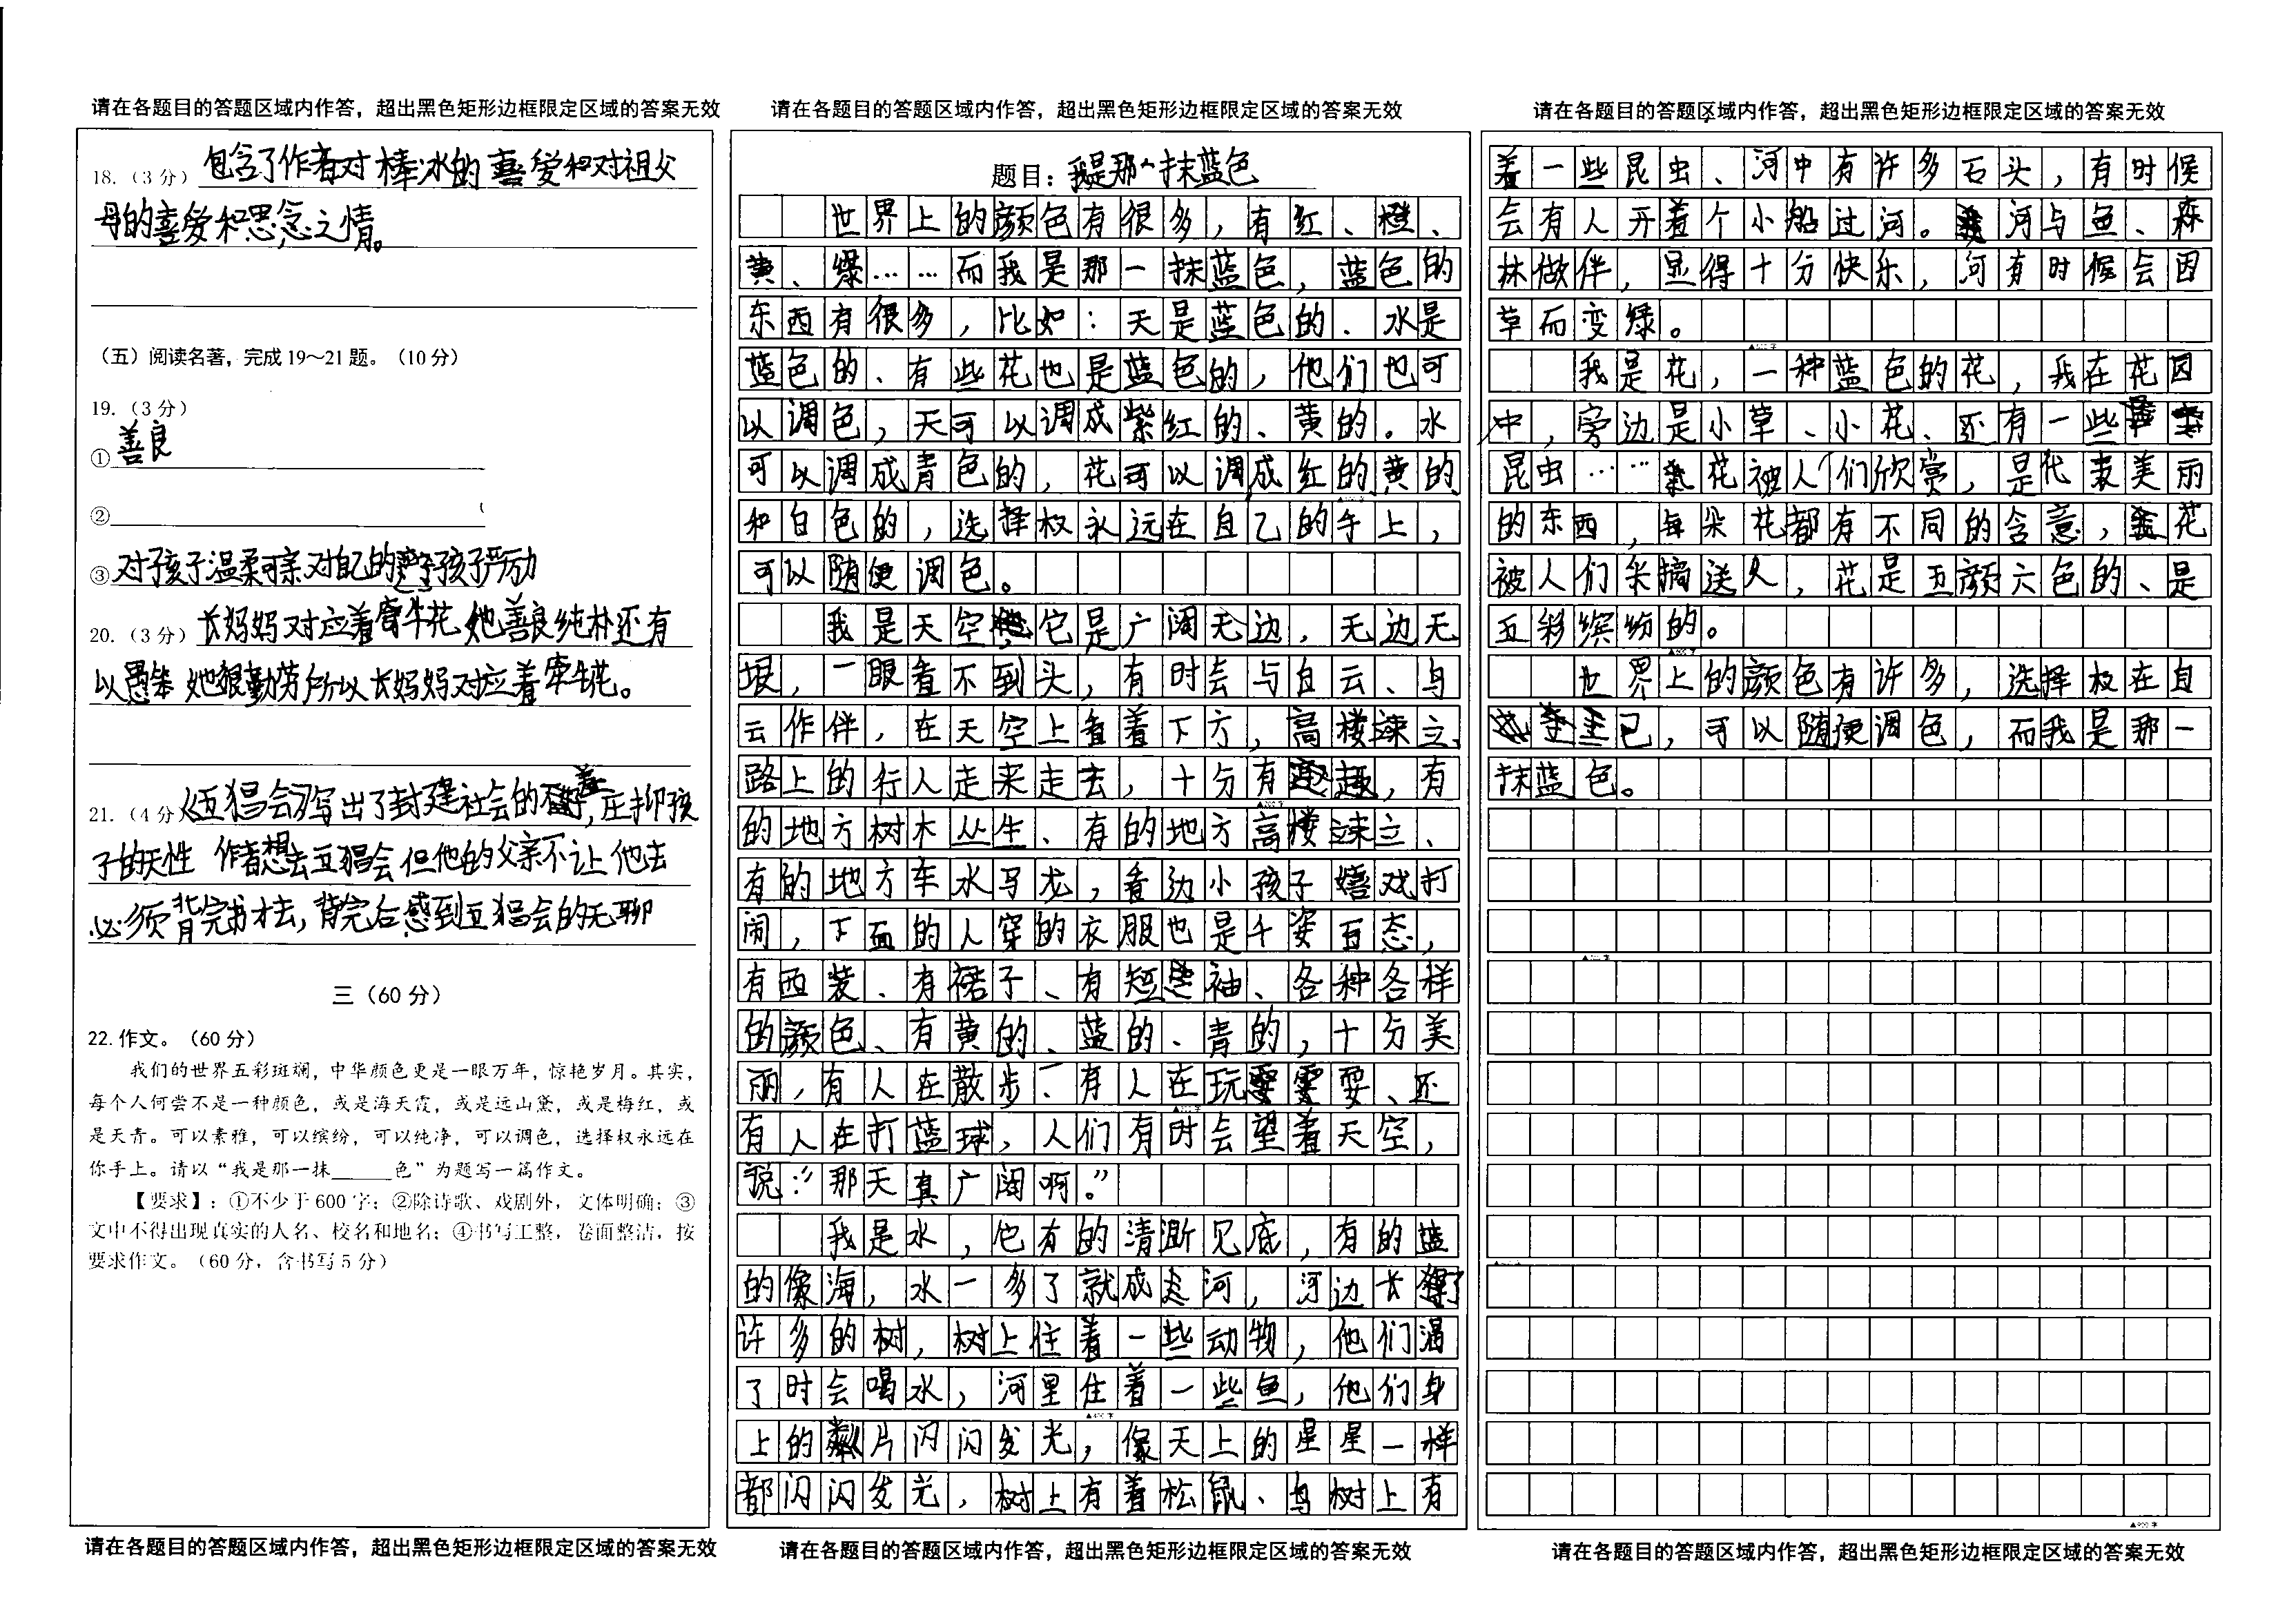 请在各题目的答题区域内作答，超出黑色矩形边框限定区域的答案无效
18.（3分）包含了作者对棒冰的喜爱和对祖父
母的喜爱和思念之情。
（五）阅读名著，完成19～21题。（10分）
19.（3分）
①善良
②
③对孩子温柔可亲 对自己的孩子严厉
20.（3分）长妈妈对应着牵牛花 她善良纯朴还有
以愚笨 她很勤劳所以长妈妈对应着牵牛花。
21.（4分）《五猖会》写出了封建社会的，压抑孩
子的天性 作者想去五猖会但他的父亲不让他去
必须背完书才去，背完后感到五猖会的无聊
三（60分）
22.作文。（60分）
我们的世界五彩斑斓，中华颜色更是一眼万年，惊艳岁月。其实，
每个人何尝不是一种颜色，或是海天霞，或是远山黛，或是梅红，或
是天青。可以素雅，可以缤纷，可以纯净，可以调色，选择权永远在
你手上。请以“我是那一抹______色”为题写一篇作文。
【要求】：①不少于600字；②除诗歌、戏剧外，文体明确；③
文中不得出现真实的人名、校名和地名；④书写工整，卷面整洁，按
要求作文。（60分，含书写5分）
请在各题目的答题区域内作答，超出黑色矩形边框限定区域的答案无效
请在各题目的答题区域内作答，超出黑色矩形边框限定区域的答案无效
题目：我是那一抹蓝色
世界上的颜色有很多，有红、橙、
黄、绿……而我是那一抹蓝色，蓝色的
东西有很多，比如：天是蓝色的、水是
蓝色的、有些花也是蓝色的，他们也可
以调色，天可以调成紫红的、黄的。水
可以调成青色的，花可以调成红的、黄的
和白色的，选择权永远在自己的手上，
可以随便调色。
我是天空，它是广阔无边，无边无
垠，一眼看不到头，有时会与白云、乌
云作伴，在天空上看着下方，高楼涑立、
路上的行人走来走去，十分有趣，有
的地方树木丛生、有的地方高楼涑立、
有的地方车水马龙，看边小孩子嬉戏打
闹，下面的人穿的衣服也是千姿百态，
有西装、有裙子、有短袖、各种各样
的颜色、有黄的、蓝的、青的，十分美
丽，有人在散步、有人在玩耍、还
有人在打蓝球，人们有时会望着天空，
说：“那天真广阔啊。”
我是水，它有的清澌见底，有的蓝
的像海，水一多了就成走河，河边长了
许多的树，树上住着一些动物，他们渴
了时会喝水，河里住着一些鱼，他们身
上的片闪闪发光，像天上的星星一样
都闪闪发光，树上有着松鼠、鸟树上有
请在各题目的答题区域内作答，超出黑色矩形边框限定区域的答案无效
请在各题目的答题区域内作答，超出黑色矩形边框限定区域的答案无效
着一些昆虫、河中有许多石头，有时候
会有人开着个小船过河。河与鱼、森
林做伴，显得十分快乐，河有时候会因
草而变绿。
我是花，一种蓝色的花，我在花园
中，旁边是小草、小花、还有一些
昆虫……花被人们欣赏，是代表美丽
的东西，每朵花都有不同的含意，花
被人们采摘送人，花是五颜六色的、是
五彩缤纷的。
世界上的颜色有许多，选择权在自
己，可以随便调色，而我是那一
抹蓝色。
▲900字
请在各题目的答题区域内作答，超出黑色矩形边框限定区域的答案无效